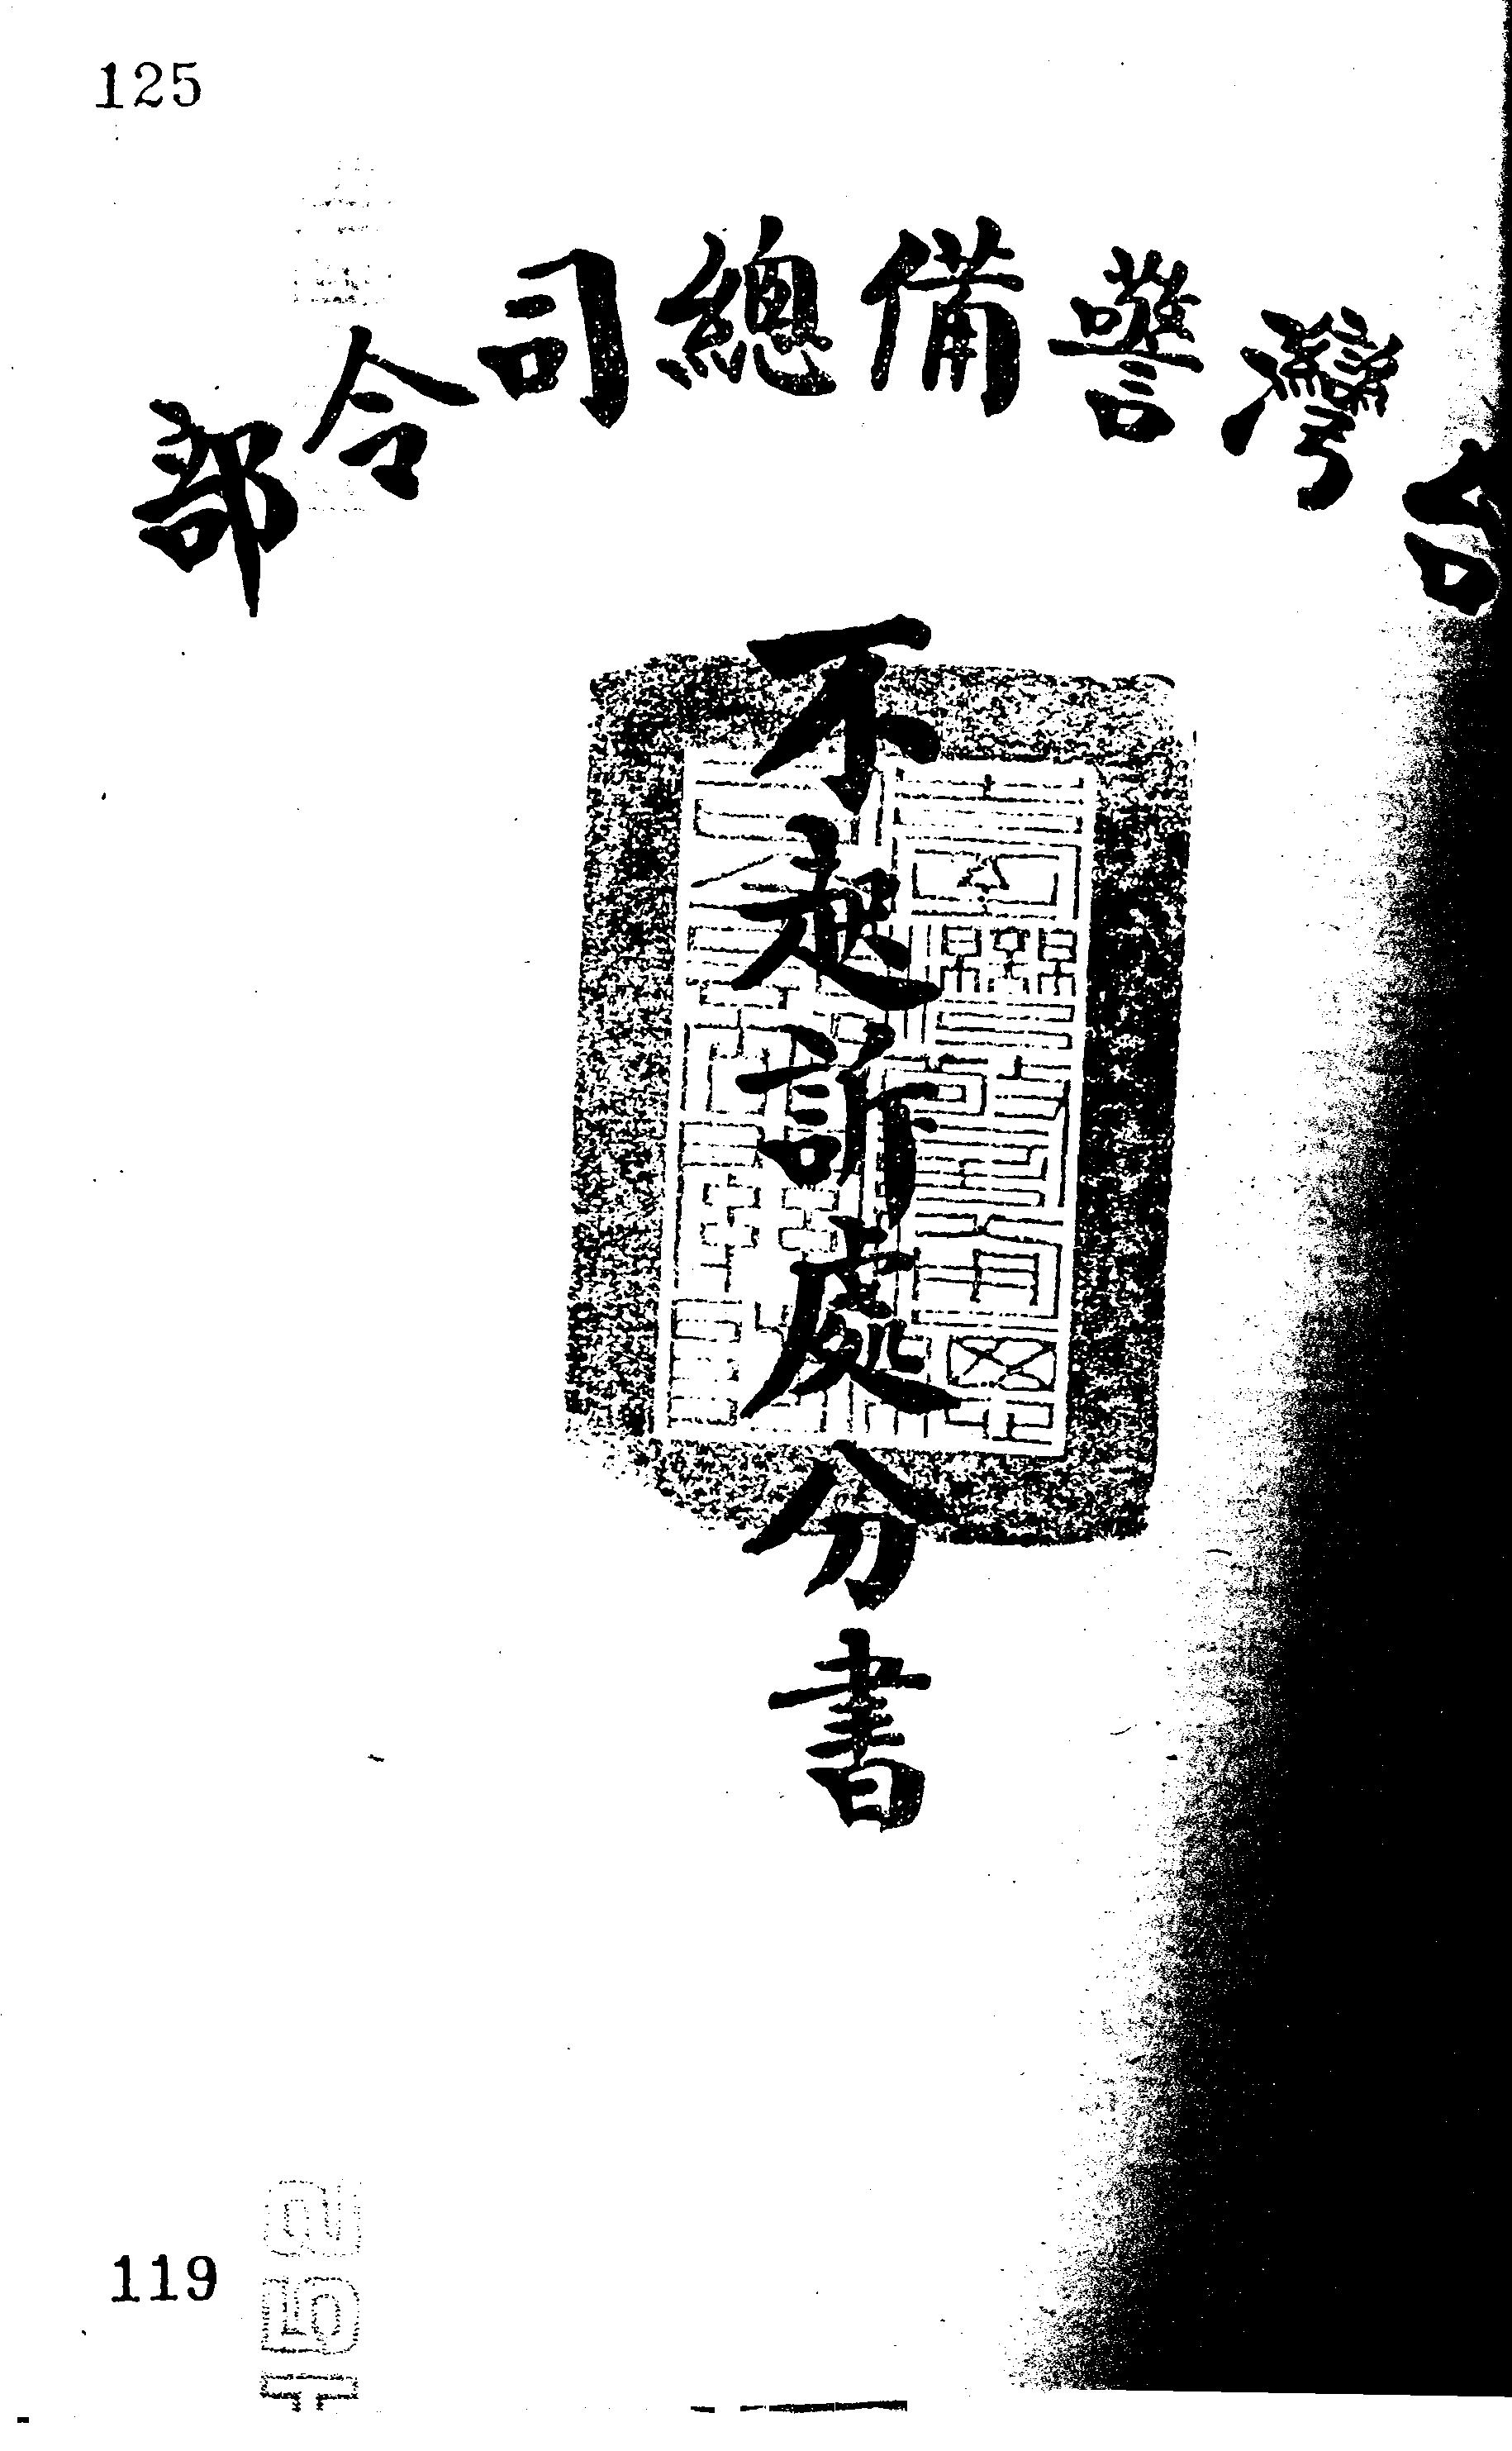 125
台灣警備總司令部
不起訴處分書
119